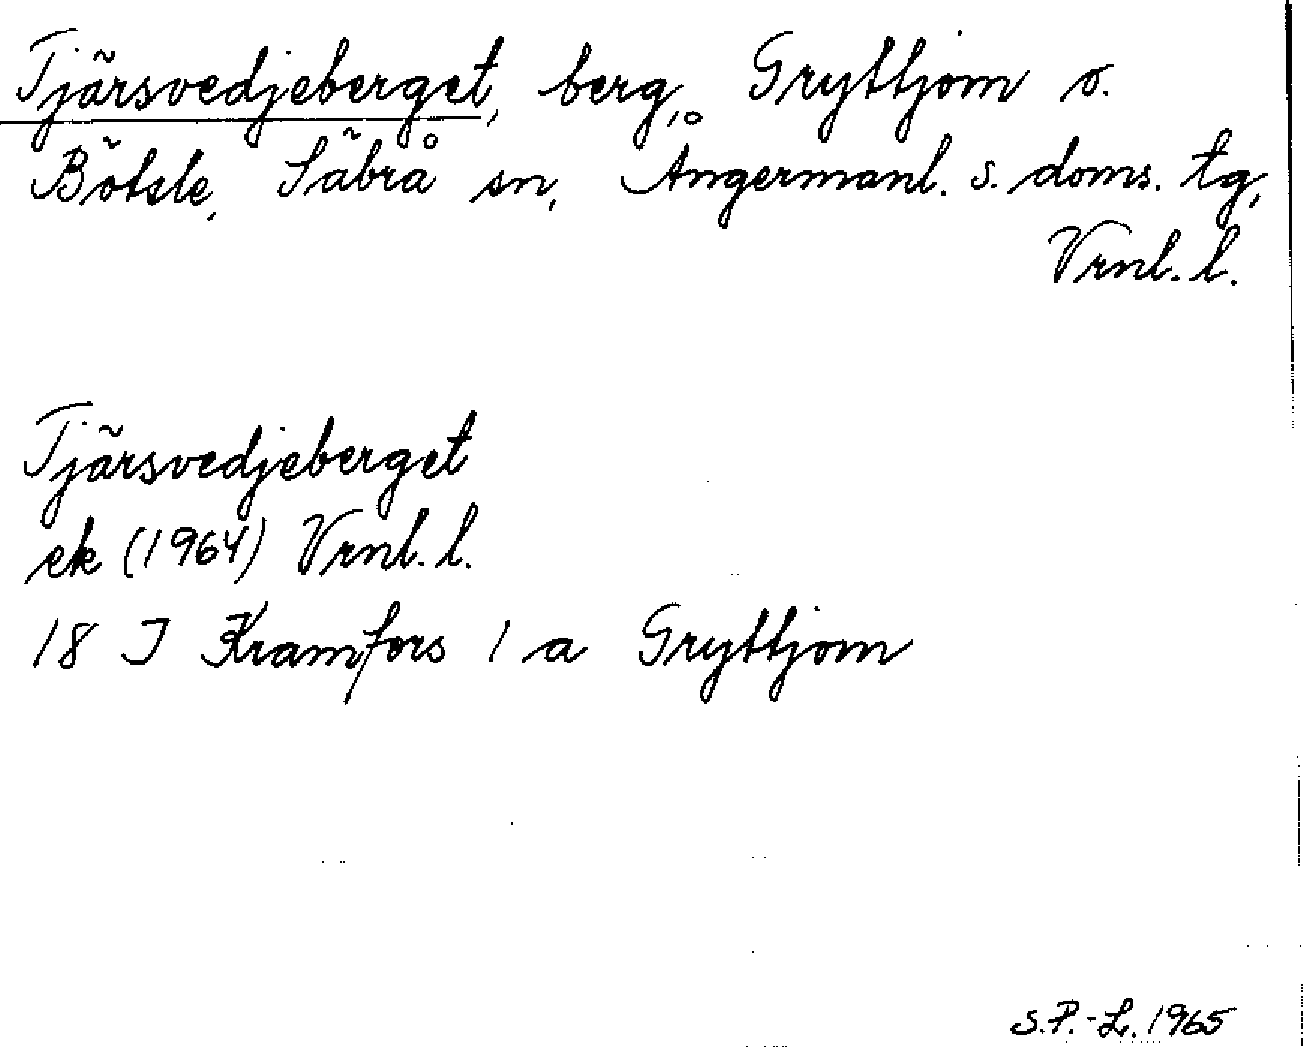 Tjärsvedjeberget, berg, Gryttjom o.
Bölsle, Säbrå sn, Ångermanl. s. doms. tg,
Vrnl. l.
Tjärsvedjeberget
ek (1964) Vrnl. l.
18 I Kramfors 1 a Gryttjom
S.P.-L. 1965